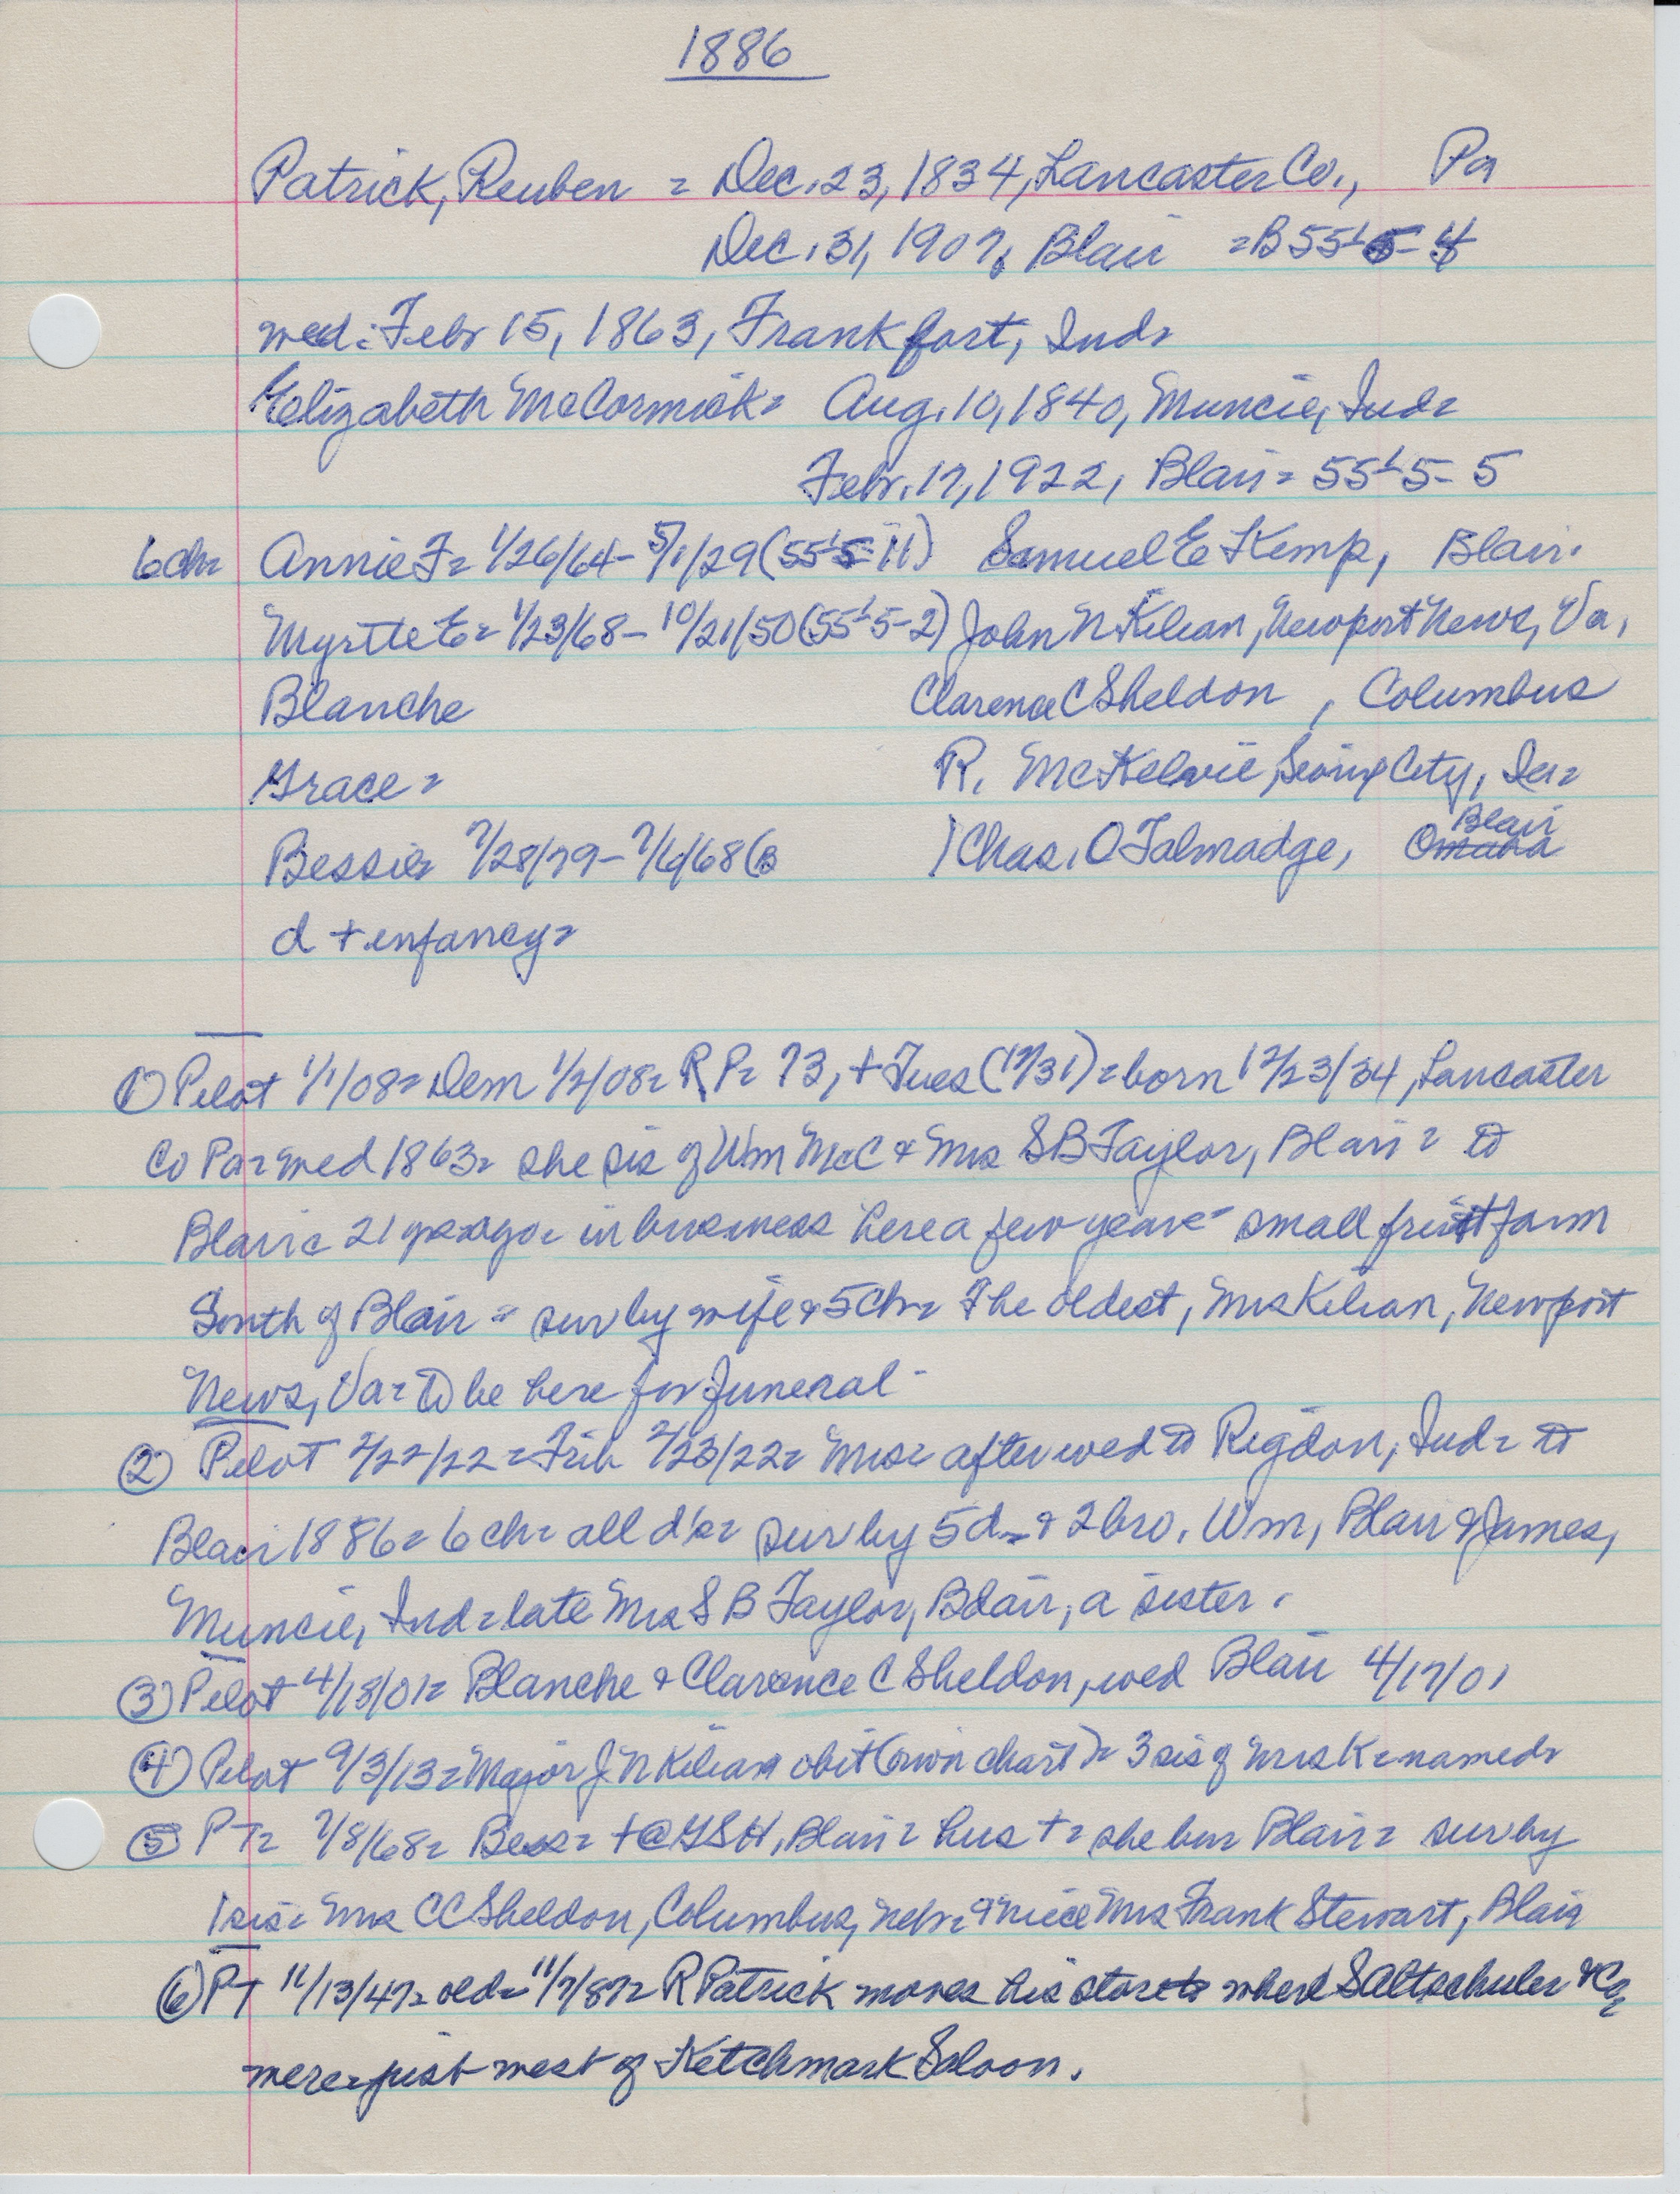 1886
Patrick, Reuben = Dec. 23, 1834, Lancaster Co., Pa
Dec. 31, 1907, Blair = B 55 L 5 - 4
wed: Febr 15, 1863, Frankfort, Ind=
Elizabeth McCormick= Aug. 10, 1840, Muncie, Ind=
Febr. 17, 1922, Blair= 55 L 5 - 5
6 ch= Annie F= 1/26/64 - 5/1/29 (55 L 5 = 11) Samuel E Kemp, Blair.
Myrtle E= 1/23/68 - 10/21/50 (55 L 5 - 2) John N Kilian, Newport News, Va.
Blanche Clarence C Sheldon, Columbus
Grace= R. McKelvie, City, Ia=
Bessie= 7/28/79 - 7/6/68 (B 1 Chas. O Talmadge, Omaha Blair
d + infancy=
① Pilot 1/1/08= Dem 1/2/08= R P= 73, + Tues (12/31)= born 12/23/34, Lancaster
Co Pa= wed 1863= she sis of Wm McC & Mrs S B Taylor, Blair= to
Blair= 21 yrs ago= in business here a few years= small fruit farm
South of Blair= sur by wife & 5 ch= The oldest, Mrs Kilian, Newport
News, Va= to be here for funeral -
② Pilot 2/22/22= Trib 2/23/22= Mrs= after wed to Rigdon, Ind= to
Blair 1886= 6 ch= all d's= sur by 5 d= & 2 bro. Wm, Blair & James,
Muncie, Ind= late Mrs S B Taylor, Blair, a sister.
③ Pilot 4/18/01= Blanche & Clarence C Sheldon, wed Blair 4/17/01
④ Pilot 9/3/13= Major J N Kilian obit (own chart)= 3 sis of Mrs K= named=
⑤ PT= 7/8/68= Bess= + @ GSH, Blair= hus += she bur Blair= sur by
1 sis= Mrs CC Sheldon, Columbus, Nebr= & niece Mrs Frank Stewart, Blair
⑥ PT 11/13/47= old= 11/7/87= R Patrick moves his store to where S Altschuler & Co=
were= just west of Ketchmark Saloon.